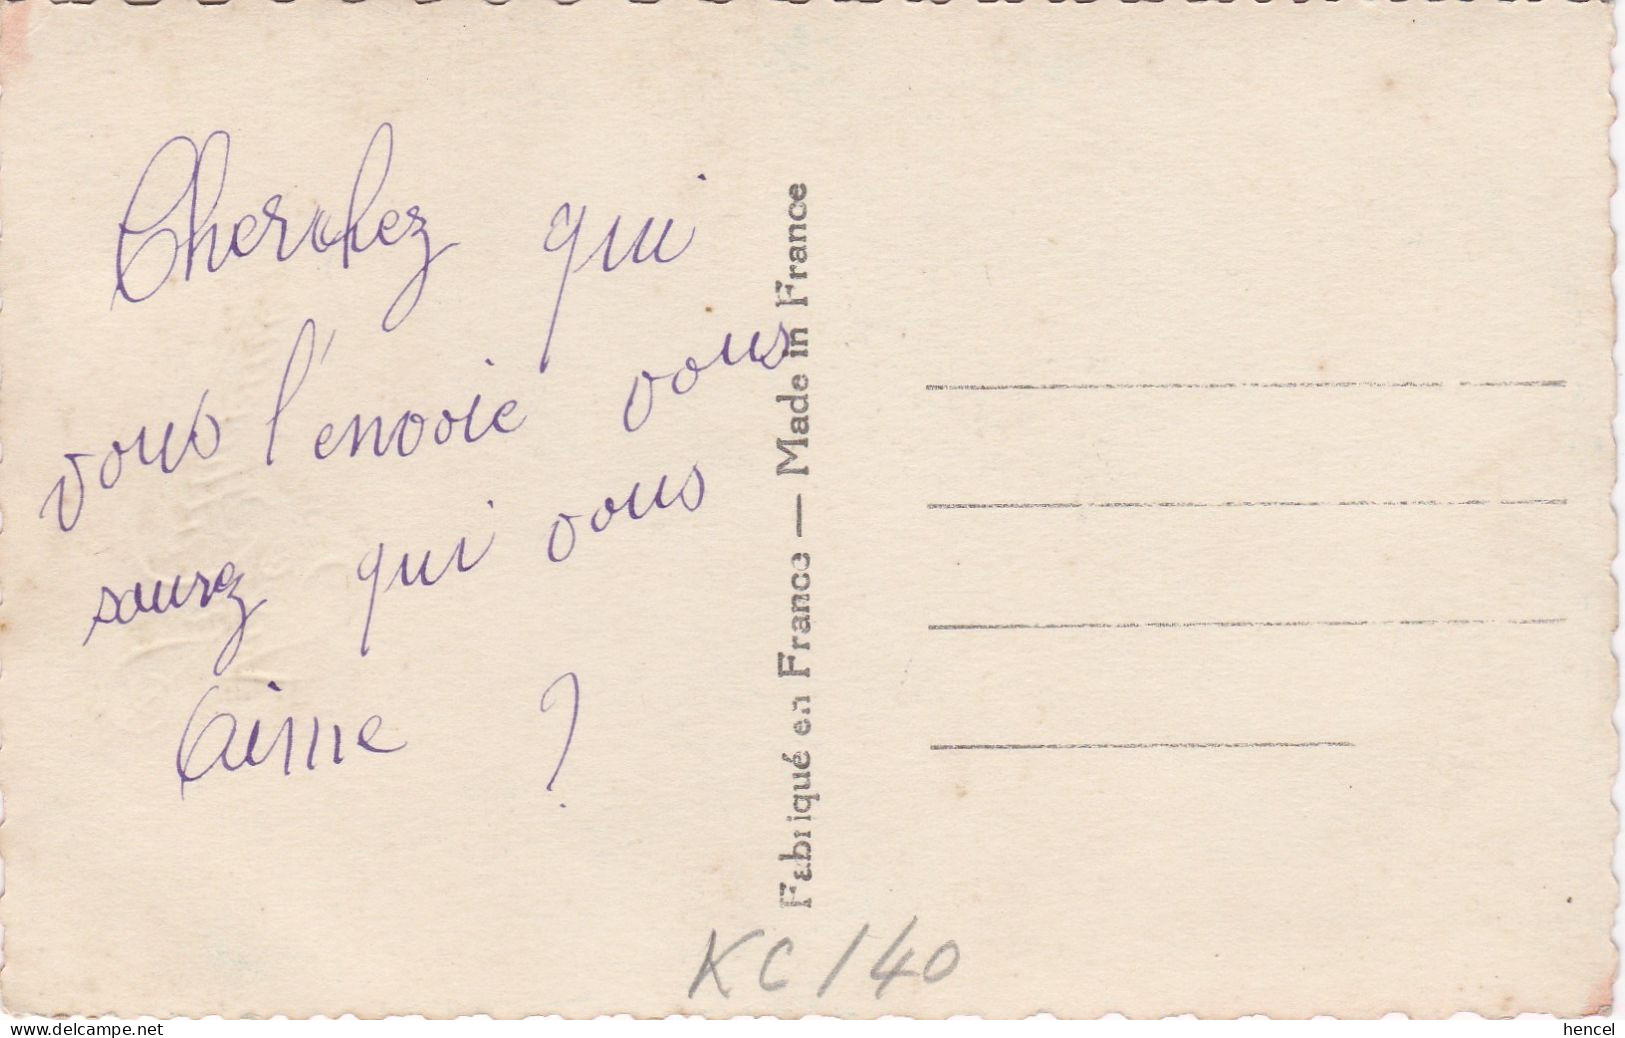 Cherchez qui
vous l'envoie vous
saurez qui vous
aime ?
Fabriqué en France — Made in France
KC/40
www.delcampe.net
hencel